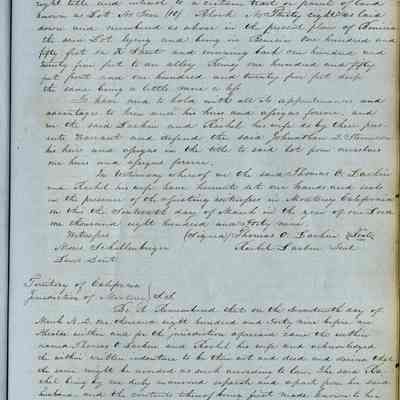 right title and interest to a certain tract or parcel of land
known as Lot No Ten (10) Block No Thirty eight as laid
down and numbered as above in the printed plan of Benicia
the said Lot lying and being in Benicia One hundred and
fifty feet on K Street and running back one hundred and
twenty five feet to an alley Being one hundred and fifty
feet front and one hundred and twenty five feet deep
the same being a little more or less
To have and to hold with all its appurtenances and
advantages to him and his heirs and assigns forever, and
we the said Larkin and Rachel his wife do by these pre-
sents Warrant and defend the said Johnathan D. Stevenson
his heirs and assigns in the title to said lot from ourselves
our heirs and assigns forever.
In testimony whereof we the said Thomas O. Larkin
and Rachel his wife have hereunto set our hands and seals
in the presence of the attesting witnesses in Monterey California
on this the Seventeenth day of March in the year of our Lord
one thousand eight hundred and Forty nine
Witnesses (Signed) Thomas O. Larkin Seal
Moses Schallenberger Rachel Larkin Seal
Territory of California
Jurisdiction of Monterey
Be it Remembered that on the Seventeenth day of
March A.D. one thousand eight hundred and Forty nine before me
within and for the jurisdiction aforesaid came the within
named Thomas O Larkin and Rachel his wife and acknowledged
the within written indenture to be their act and deed and desired that
the same might be recorded as such according to law. The said Ra-
chel being by me duly examined separate and apart from her said
husband and the contents thereof being first made known to her